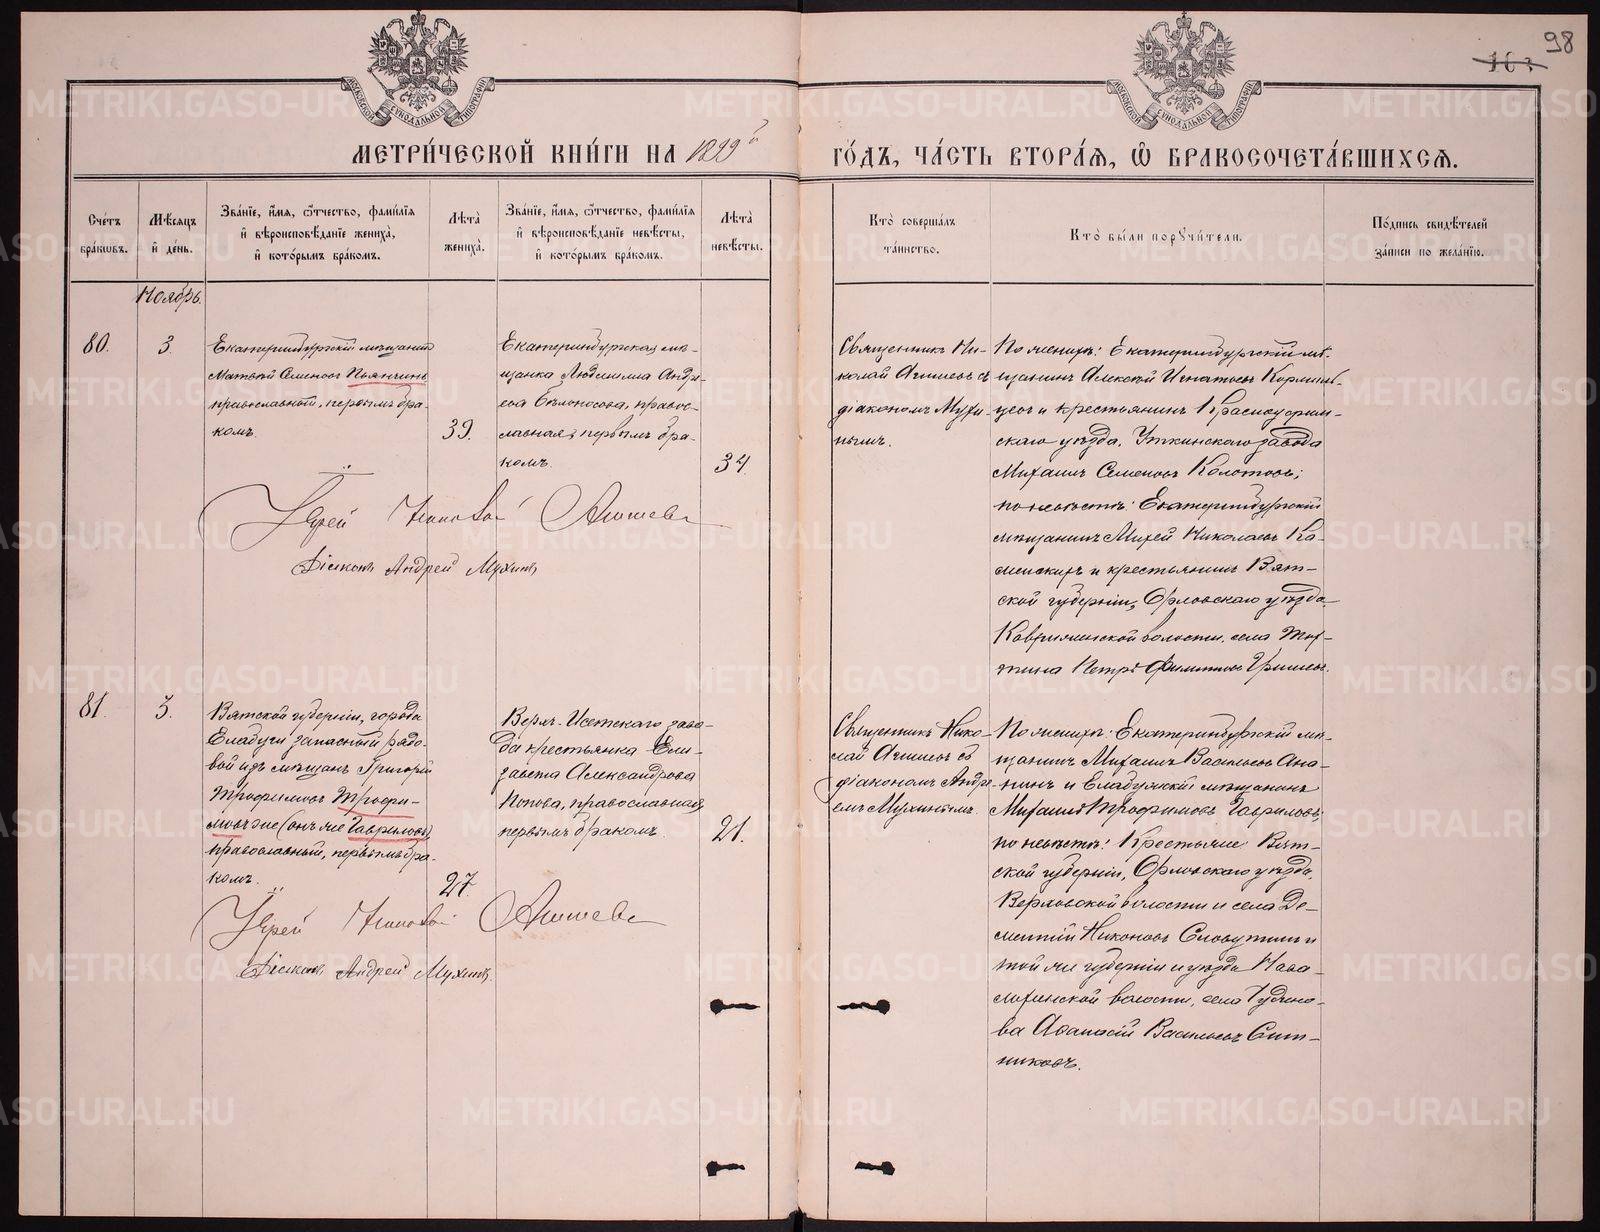 98
МЕТРИ́ЧЕСКОЙ КНИ́ГИ НА 1899й ГО́ДЪ, ЧА́СТЬ ВТОРА́Я, Ѡ БРАКОСОЧЕТА́ВШИХСЯ.
Сче́тъ бра́кѡвъ.
Мѣ́сяцъ и҆ де́нь.
Зва́нїе, и҆́мя, ѻ҆́тчество, фами́лїя и҆ вѣроисповѣ́данїе жениха̀, и҆ кото́рымъ бра́комъ.
Лѣта̀ жениха̀.
Зва́нїе, и҆́мя, ѻ҆́тчество, фами́лїя и҆ вѣроисповѣ́данїе невѣ́сты, и҆ кото́рымъ бра́комъ.
Лѣта̀ невѣ́сты.
Кто̀ соверша́лъ та́инство.
Кто̀ бы́ли порꙋчи́тели.
По́дпись свидѣ́телей за́писи по жела́нїю.
Ноябрь.
80.
3
Екатеринбургскій мѣщанинъ
Матвѣй Семеновъ Пьянчинъ
православный, первымъ бра-
комъ.
39.
Екатеринбургская мѣ-
щанка Людмилла Андре-
ева Бѣлоносова, правос-
лавная, первымъ бра-
комъ.
34.
Священникъ Ни-
колай Агишевъ съ
діакономъ Мухи-
нымъ.
По женихѣ: Екатеринбургскій мѣ-
щанинъ Алексѣй Игнатьевъ
и крестьянинъ Красноуфим-
скаго уѣзда, Уткинскаго завода
Михаилъ Семеновъ Колотовъ;
по невѣстѣ: Екатеринбургскій
мѣщанинъ Михей Николаевъ Ка-
менскихъ и крестьянинъ Вят-
ской губерніи, Орловскаго уѣзда,
волости, села
Петръ Филипповъ Гришевъ.
Іерей Николай Агишевъ
Діаконъ Андрей Мухинъ
81.
3.
Вятской губерніи, города
Елабуги запасный рядо-
вой изъ мѣщанъ Григорій
Трофимовъ Трофи-
мовъ же (онъ же Гавриловъ),
православный, первымъ бра-
комъ.
27.
Верхъ-Исетскаго заво-
да крестьянка Ели-
завета Александрова
Попова, православная,
первымъ бракомъ.
21.
Священникъ Нико-
лай Агишевъ съ
діакономъ Андре-
емъ Мухинымъ.
По женихѣ: Екатеринбургскій мѣ-
щанинъ Михаилъ Васильевъ Ана-
нинъ и Елабужскій мѣщанинъ
Михаилъ Трофимовъ Гавриловъ;
по невѣстѣ: Крестьяне Вят-
ской губерніи, Орловскаго уѣзда,
волости и села Де-
ментій Никоновъ и
той же губерніи и уѣзда
волости, села
Аѳанасій Васильевъ Сит-
никовъ.
Іерей Николай Агишевъ
Діаконъ Андрей Мухинъ
METRIKI.GASO-URAL.RU